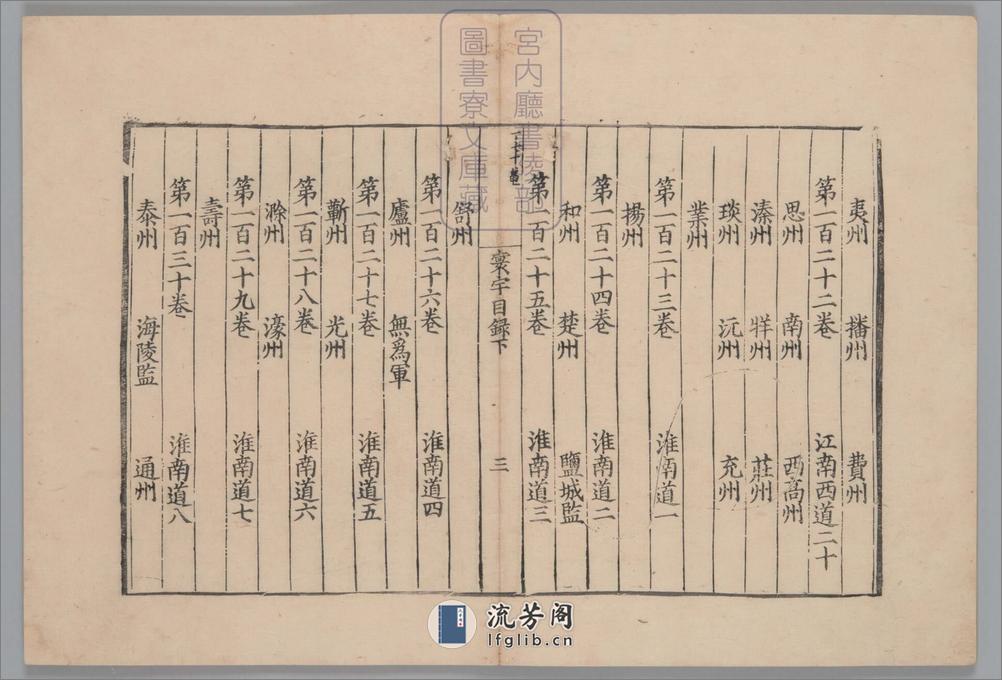 夷州 播州 費州
第一百二十二卷 江南西道二十
思州 南州 西高州
溱州 牂州 莊州
琰州 沅州 充州
業州
第一百二十三卷 淮南道一
揚州
第一百二十四卷 淮南道二
和州 楚州 鹽城監
第一百二十五卷 淮南道三
寰宇目録下 三
舒州
第一百二十六卷 淮南道四
廬州 無爲軍
第一百二十七卷 淮南道五
蘄州 光州
第一百二十八卷 淮南道六
滁州 濠州
第一百二十九卷 淮南道七
壽州
第一百三十卷 淮南道八
泰州 海陵監 通州
宮内廳書陵部
圖書寮文庫藏
流芳阁
lfglib.cn